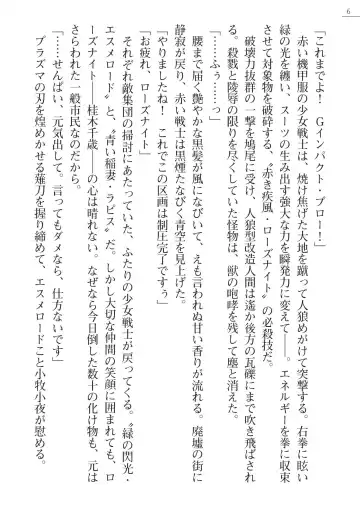 6
「これまでよ！　Ｇインパクト・ブロー！」
　赤い機甲服の少女戦士は、焼け焦げた大地を蹴って人狼めがけて突撃。右拳に眩い
緑の光を纏い、スーツの生み出す強大な力を瞬発力に変えて――。エネルギーを右拳に収束
させて対象物を破砕する、〝赤き疾風・ローズナイト〟の必殺技だ。
　破壊力抜群の一撃を鳩尾に受け、人狼型改造人間は遙か後方の瓦礫にまで吹き飛ばされ
る。殺戮と陵辱の限りを尽くしていた怪物は、獣の咆哮を残して塵と消えた。
「……ふぅ……っ」
　腰まで届く艶やかな黒髪が風になびいて、えも言われぬ甘い香りが流れる。廃墟の街に
静寂が戻り、赤い戦士は黒煙たなびく青空を見上げた。
「やりましたね！　これでこの区画は制圧完了ですぅ」
「お疲れ、ローズナイト」
　それぞれ敵集団の掃討にあたっていた、ふたりの少女戦士が戻ってくる。〝緑の閃光・
エスメロード〟と、〝青い稲妻・ラピス〟だ。しかし大切な仲間の笑顔に囲まれても、ロ
ーズナイト――桂木千歳――の心は晴れない。なぜなら今日倒した数十の化け物も、元は
さらわれた一般市民なのだから。
「……せんぱい、元気出して。言ってもダメなら、仕方ないです」
　プラズマの刃を煌めかせる薙刀を握り締めて、エスメロードこと小牧小夜が慰める。